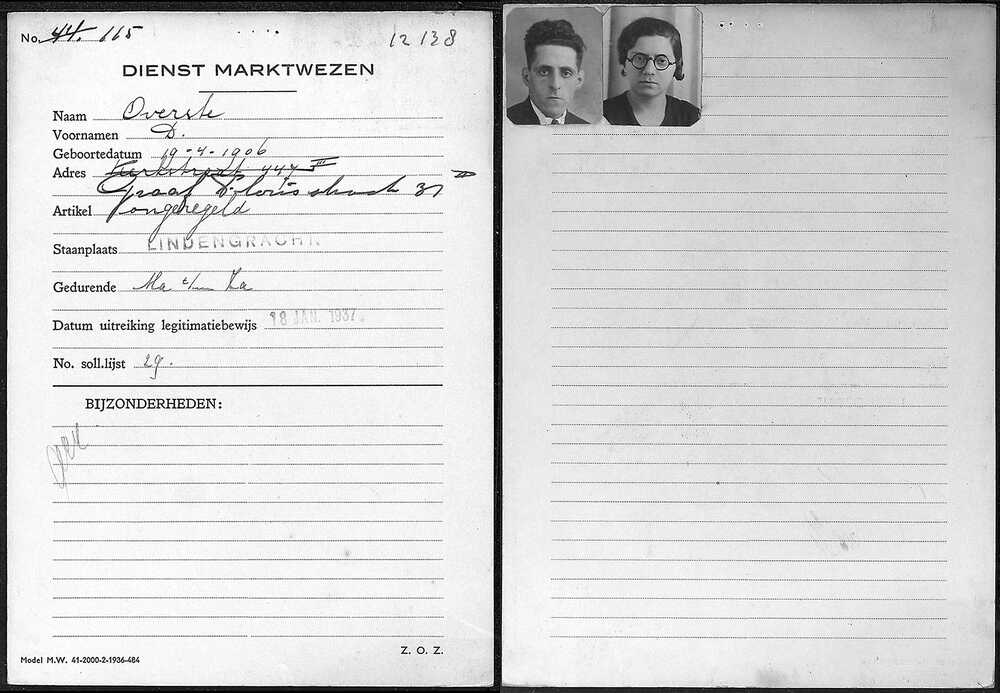 No. 44. 115
12138
DIENST MARKTWEZEN
Naam Overste
Voornamen D.
Geboortedatum 19-4-1906
Adres Kerkstraat 447 III
Graaf Florisstraat 37 II
Artikel ongeregeld
Staanplaats LINDENGRACHT.
Gedurende Ma t/m Za
Datum uitreiking legitimatiebewijs 18 JAN. 1937.
No. soll.lijst 29.
BIJZONDERHEDEN:
Z. O. Z.
Model M.W. 41-2000-2-1936-484